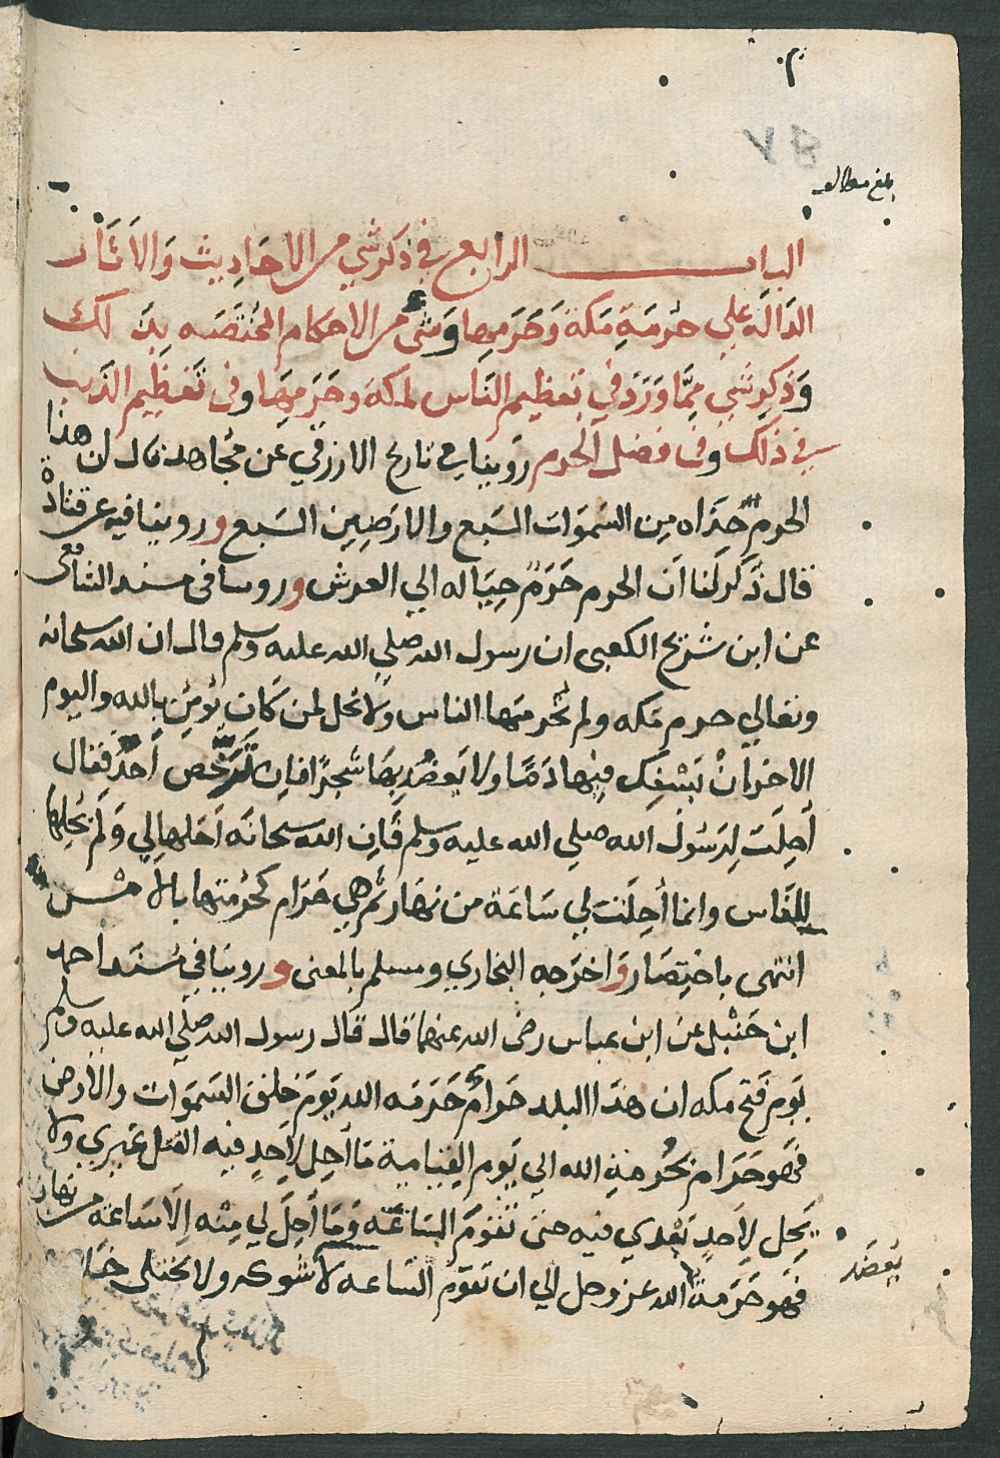 بلغ مطالعه
الباب الرابع في ذكر شي من الاحاديث والاثار
الدالة علي حرمة مكة وحرمها وشئ من الاحكام المختصه بذلك
وذكر شي مما ورد في تعظيم الناس لمكة وحرمها وفي تعظيم الذنب
في ذلك وفي فضل الحرم روينا في تاريخ الازرقي عن مجاهد قال ان هذا
الحرم حذاه من السموات السبع والارضين السبع وروينا فيه عن قتادة
قال ذكر لنا ان الحرم حرم حياله الي العرش وروينا في مسند الشافعي
عن ابن شريح الكعبي ان رسول الله صلي الله عليه وسلم قال ان الله سبحانه
وتعالي حرم مكه ولم يحرمها الناس ولا يحل لمن كان يؤمن بالله واليوم
الاخر ان يسفك فيها دما ولا يعضد بها شجرا فان ترخص احد فقال
احلت لرسول الله صلي الله عليه وسلم فان الله سبحانه احلها لي ولم يحلها
للناس وانما احلت لي ساعة من نهار ثم هي حرام كحرمتها بالامس
انتهى باختصار واخرجه البخاري ومسلم بالمعنى وروينا في مسند احمد
ابن حنبل عن ابن عباس رضى الله عنهما قال قال رسول الله صلي الله عليه وسلم
يوم فتح مكه ان هذا البلد حرام حرمه الله يوم خلق السموات والارض
فهو حرام بحرمة الله الي يوم القيامة ما احل لاحد فيه القتل غيري ولا
يحل لاحد بعدي فيه حتى تقوم الساعة وما احل لي منه الا ساعة من نهار
فهو حرمة الله عز وجل الي ان تقوم الساعه لا شوكه ولا يختلى خلا
يعضد